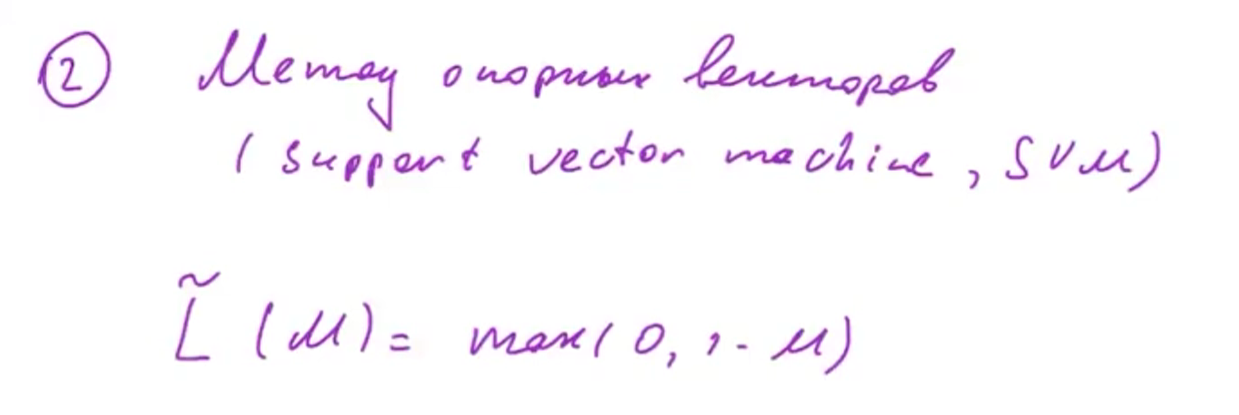 ② Метод опорных векторов
(support vector machine, SVM)
L̃(M) = max(0, 1 - M)